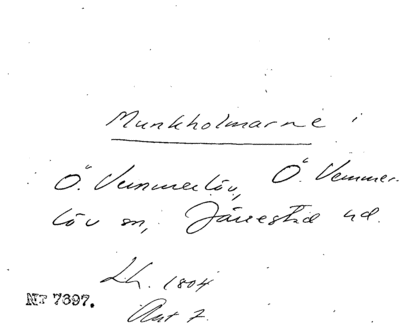 Munkholmarne i
Ö. Vemmerlöv, Ö. Vemmer-
löv sn, Järrestad hd.
Lh. 1804
Akt 7.
Nr 7697.